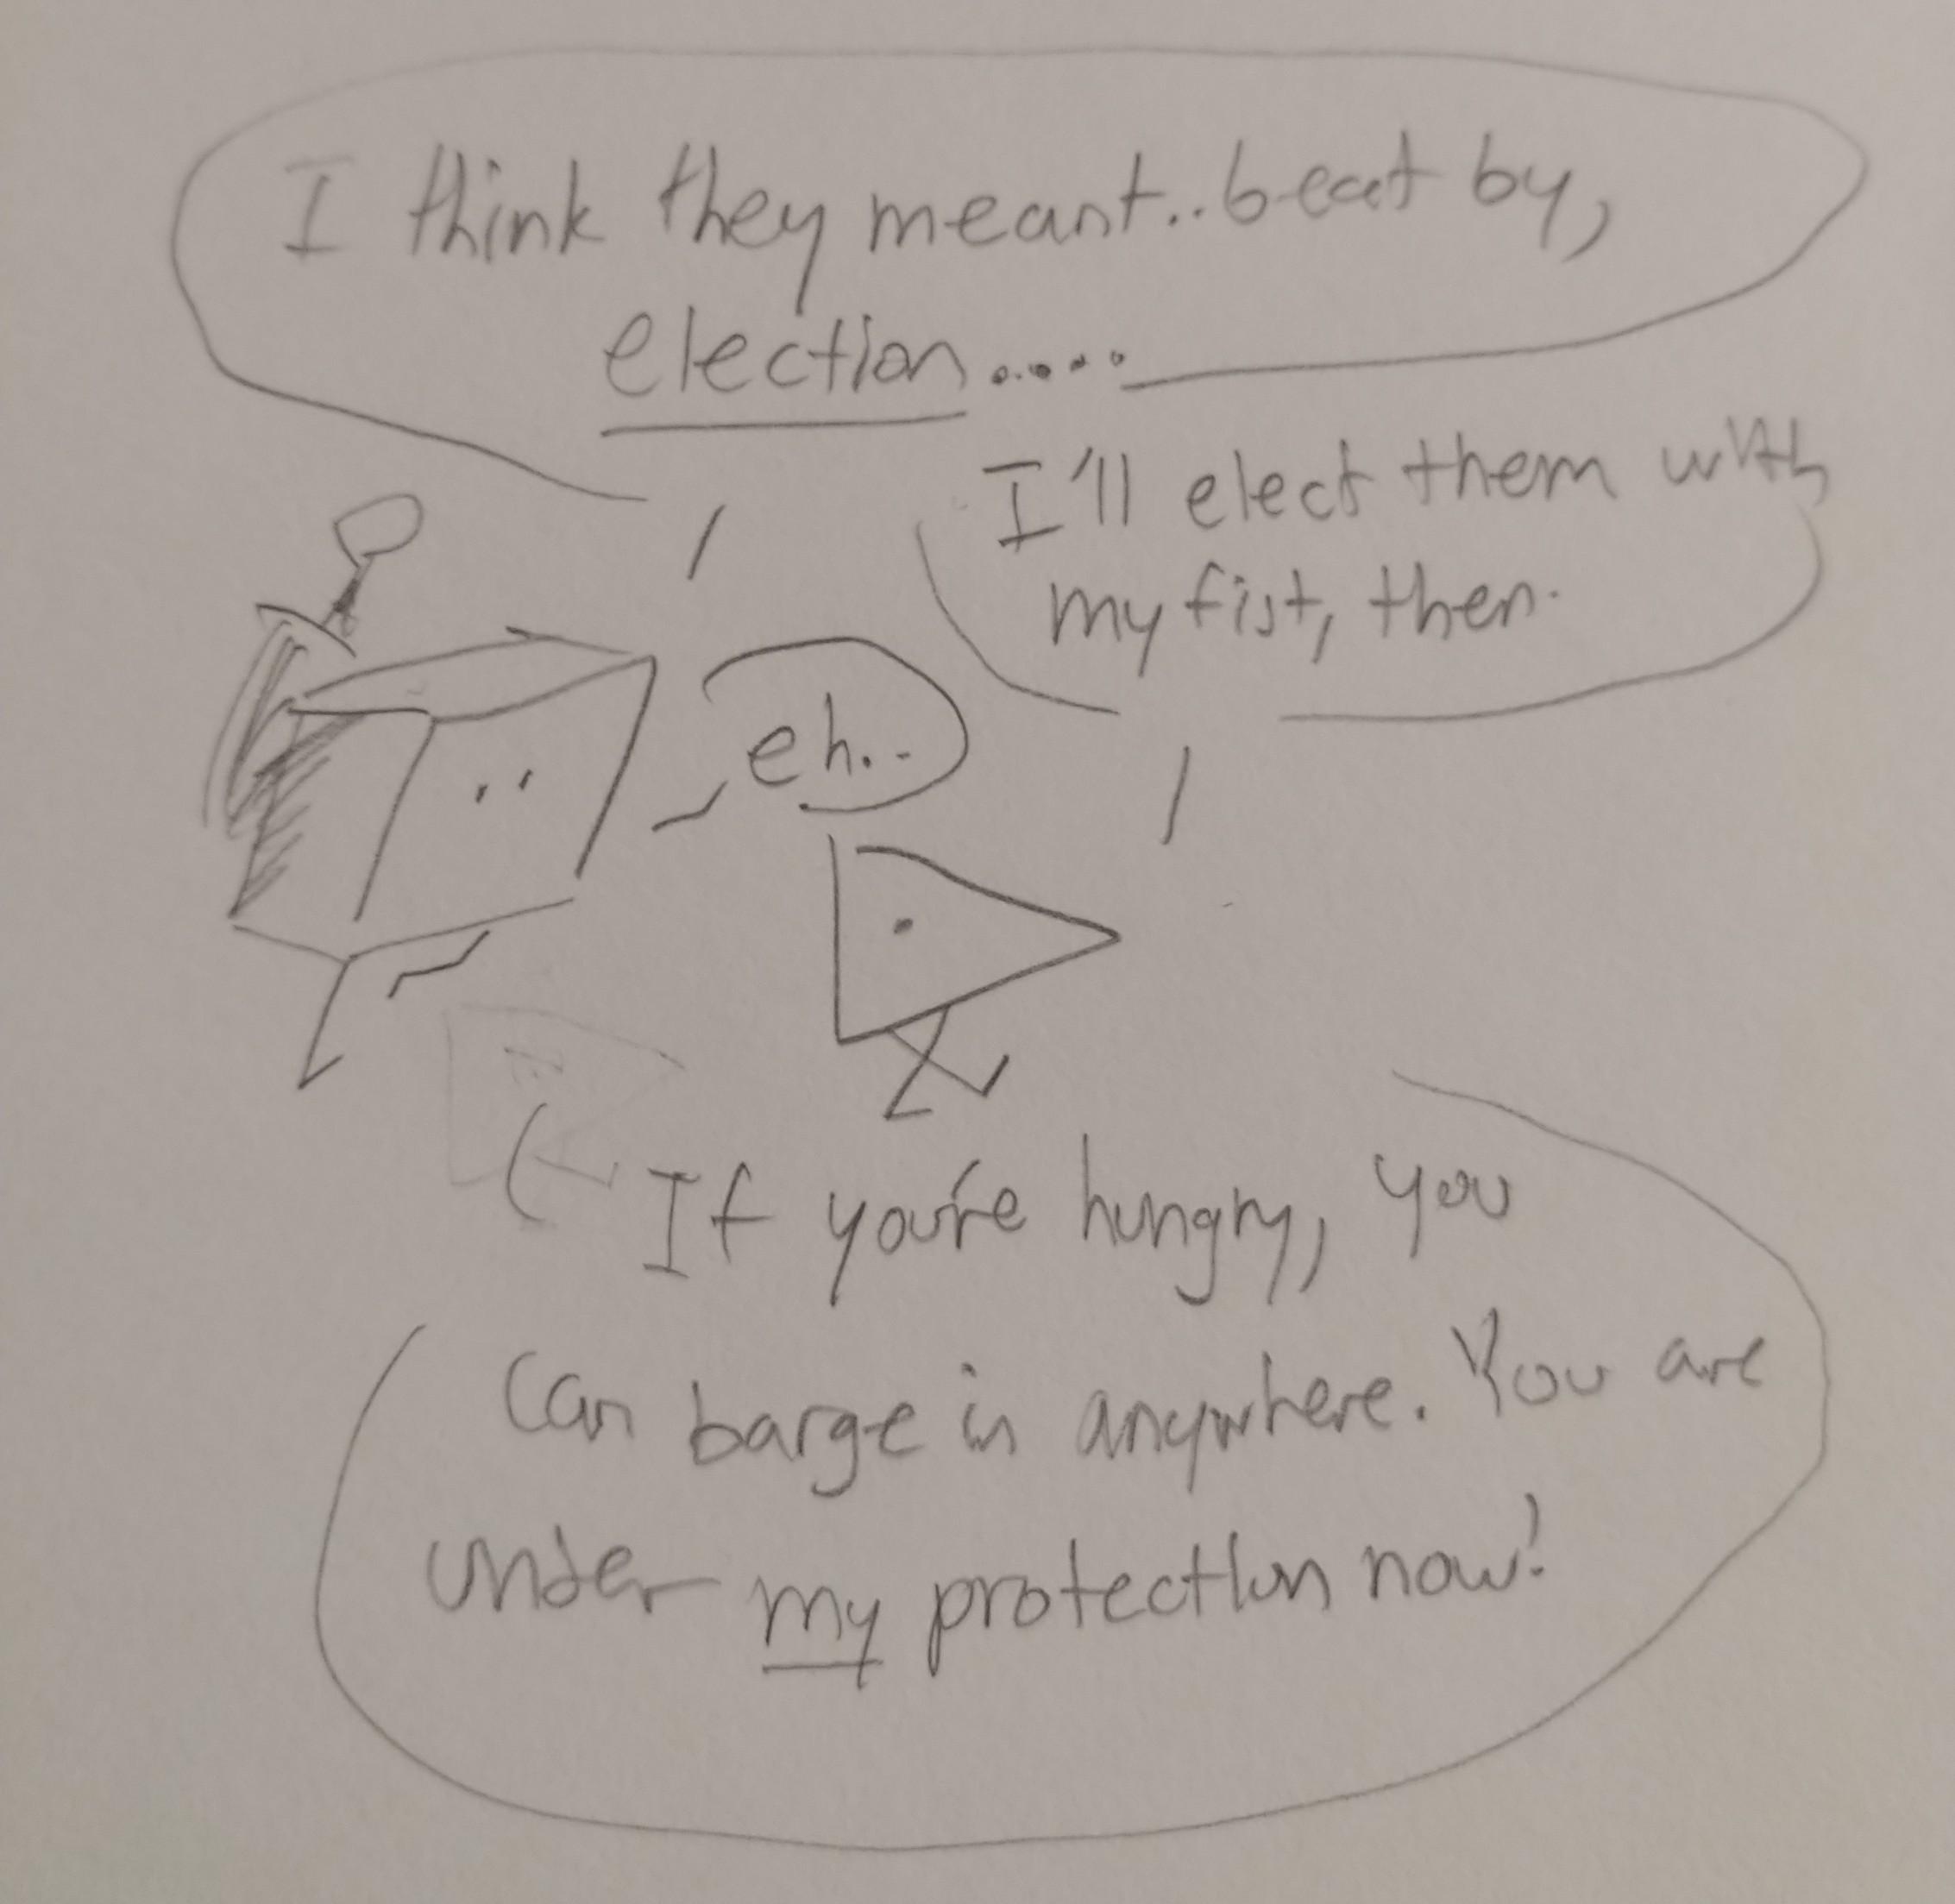 I think they meant..beat by,
election.....
I'll elect them with
my fist, then.
eh..
If you're hungry, you
can barge in anywhere. You are
under my protection now!